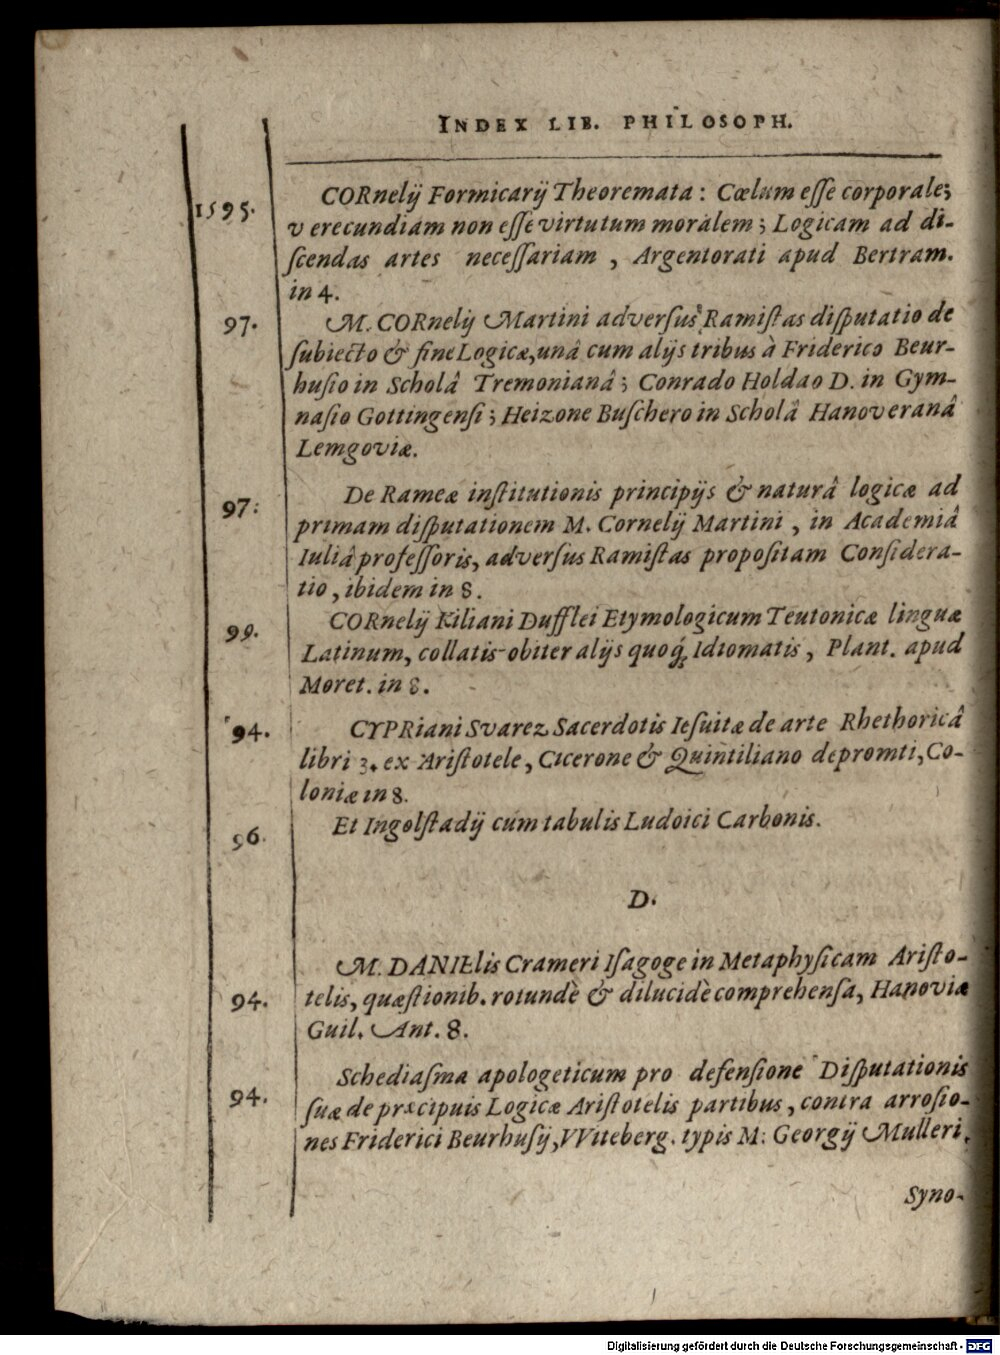 INDEX LIB. PHILOSOPH.
1595. CORnelij Formicarij Theoremata: Cœlum eſſe corporale;
verecundiam non eſſe virtutum moralem; Logicam ad di-
ſcendas artes neceſſariam, Argentorati apud Bertram.
in 4.
97. M. CORnelij Martini adverſus Ramiſtas diſputatio de
ſubiecto & fine Logicæ, unâ cum alijs tribus à Friderico Beur-
huſio in Scholâ Tremonianâ; Conrado Holdao D. in Gym-
naſio Gottingenſi; Heizone Buſchero in Scholâ Hanoveranâ
Lemgoviæ.
97: De Rameæ inſtitutionis principijs & naturâ logicæ ad
primam diſputationem M. Cornelij Martini, in Academiâ
Iuliâ profeſſoris, adverſus Ramiſtas propoſitam Conſidera-
tio, ibidem in 8.
99. CORnelij Kiliani Dufflei Etymologicum Teutonicæ linguæ
Latinum, collatis obiter alijs quoq́; Idiomatis, Plant. apud
Moret. in 8.
94. CYPRiani Svarez Sacerdotis Ieſuitæ de arte Rhethoricâ
libri 3. ex Ariſtotele, Cicerone & Quintiliano depromti, Co-
loniæ in 8.
96. Et Ingolſtadij cum tabulis Ludoici Carbonis.
D.
M. DANIElis Crameri Iſagoge in Metaphyſicam Ariſto-
94. telis, quæſtionib. rotundè & dilucidè comprehenſa, Hanoviæ
Guil. Ant. 8.
Schediaſma apologeticum pro defenſione Diſputationis
94. ſuæ de præcipuis Logicæ Ariſtotelis partibus, contra arroſio-
nes Friderici Beurhuſij, VViteberg. typis M. Georgij Mulleri.
Syno-
Digitalisierung gefördert durch die Deutsche Forschungsgemeinschaft - DFG